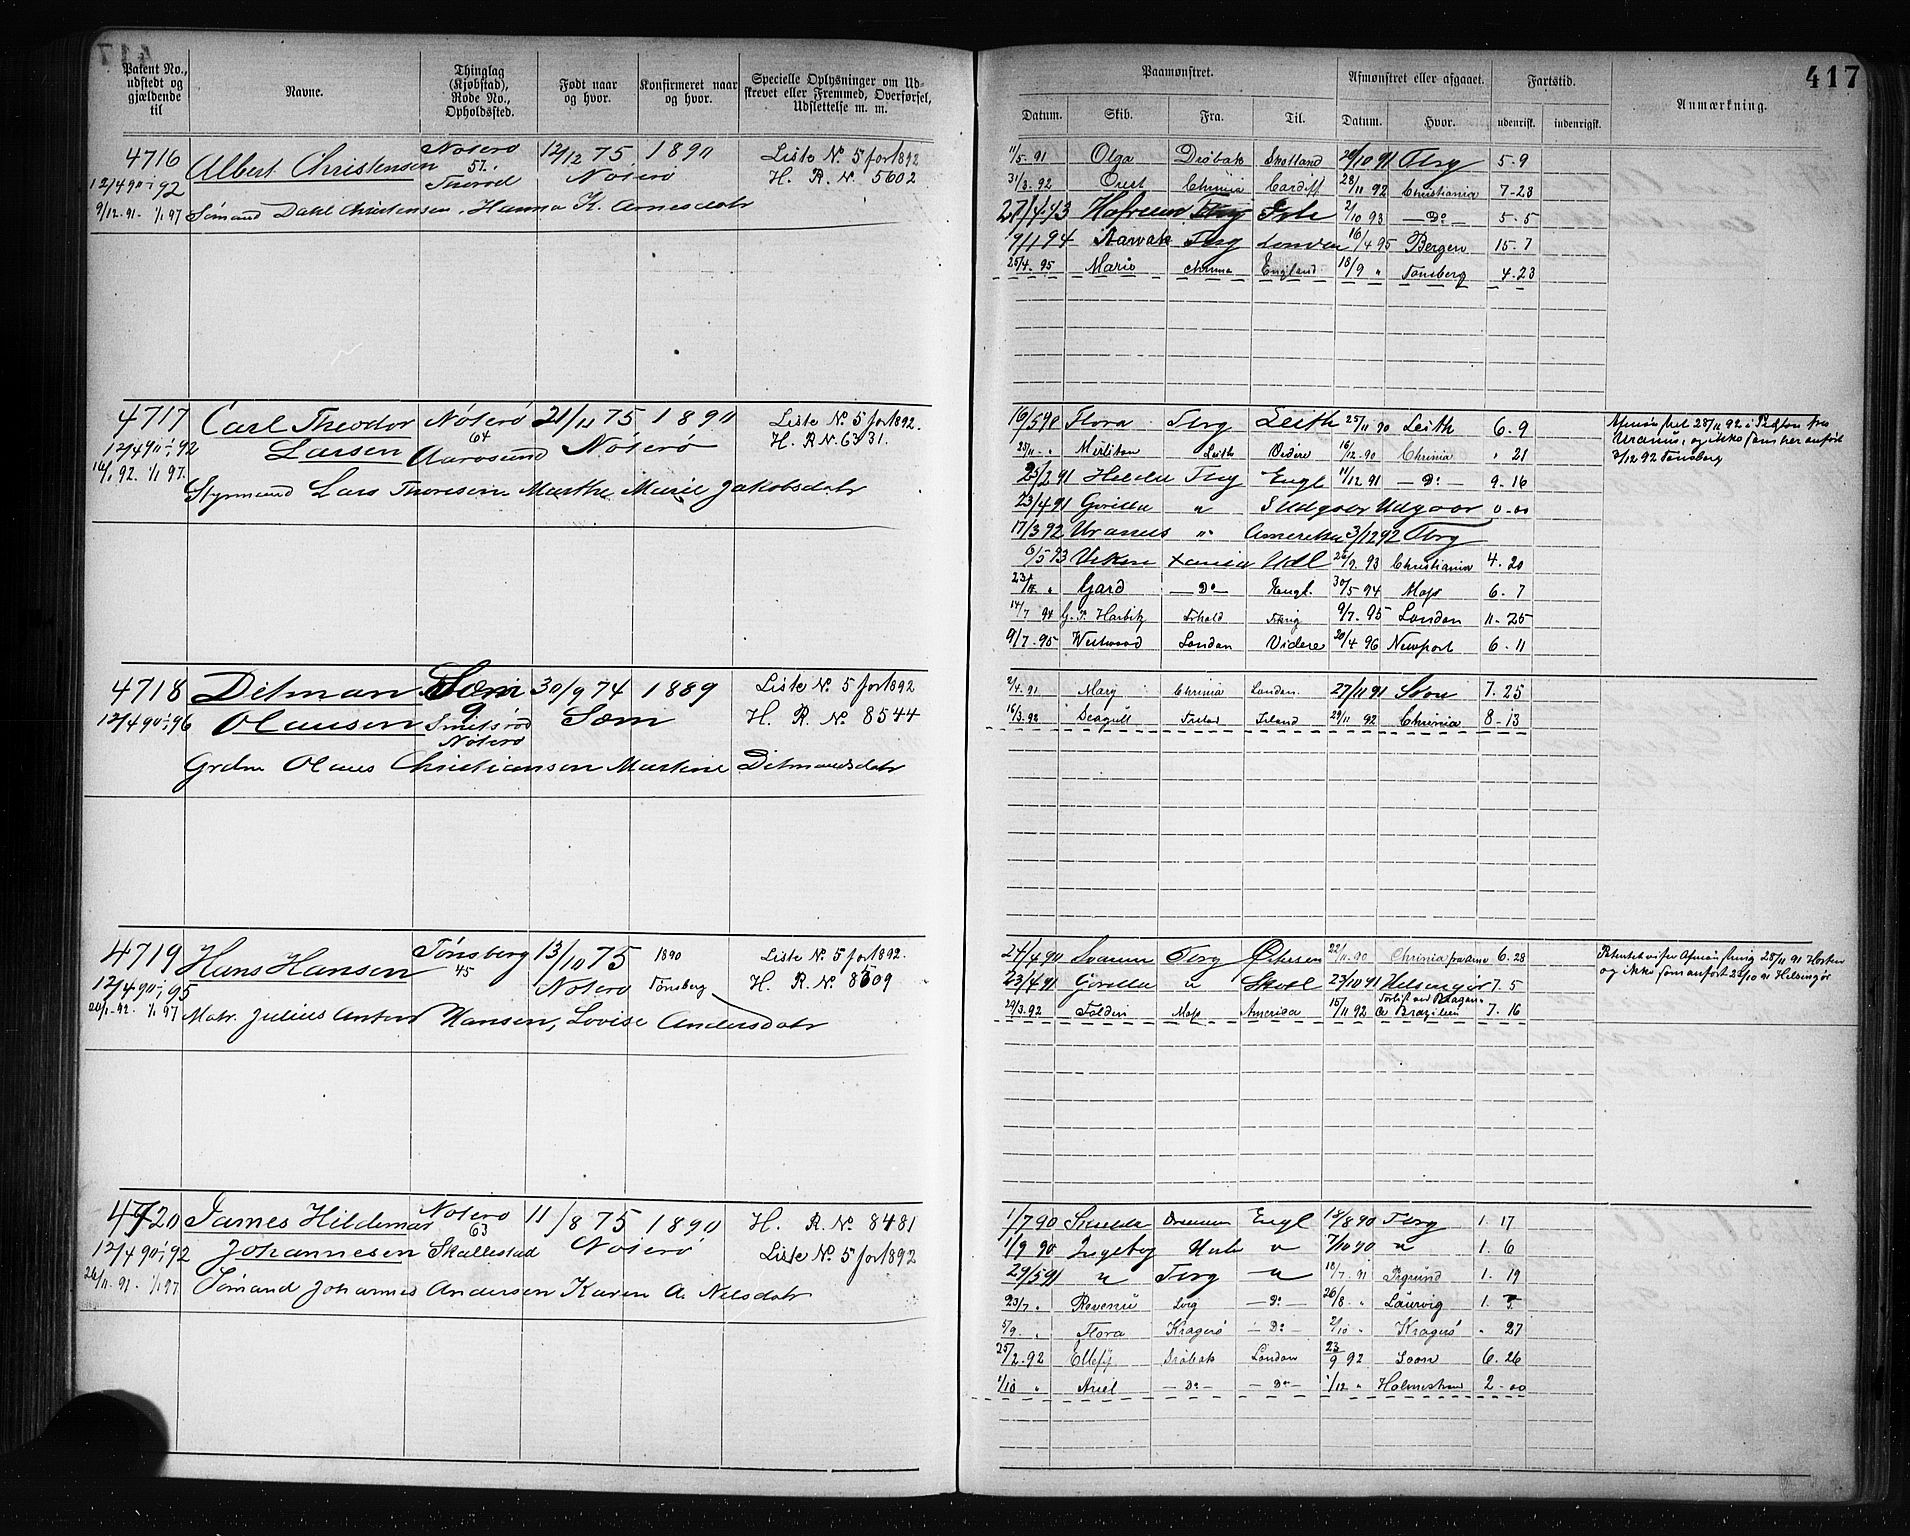 417
Patent No., udstedt og gjældende til
Navne.
Thinglag (Kjøbstad), Rode No., Opholdssted.
Født naar og hvor.
Konfirmeret naar og hvor.
Specielle Oplysninger om Udskrevet eller Fremmed, Overførsel, Udslettelse m. m.
4716 Albert Christensen Nøterø 12/12 75 1890 Liste No. 5 for 1892
12/4 90 - 1/1 92 57. Thorød Nøterø H. R. No. 5602
9/12-91- 1/1 97 Sømand Dahl Christensen, Hanna K. Arnesdatr
4717 Carl Theodor Nøterø 21/11 75 1890 Liste No. 5 for 1892.
12/4 90 - 1/1 92 Larsen 64 Aarøsund Nøterø H. R. No. 6331.
1/1 97. Styrmand Lars Thoresen Marthe Marie Jakobsdatr
4718 Ditman Sæm 30/9 74 1889 Liste No. 5 for 1892
12/4 90 - 1/1 96 Olaussen 9 Smidsrød Sæm H. R. No. 8544
Nøterø
Grdbr Olaus Christiansen Martine Ditmandsdatr
4719 Hans Hansen Tønsberg 13/10 75 1890 Liste No. 5 for 1892.
12/4 90 - 1/1 95 45 Nøterø Tønsberg H. R. No. 8509
1/1 97 Matr. Julius Anton Hansen, Lovise Andersdatr
4720 James Hildemar Nøterø 11/8 75 1890 H. R. No. 8481
12/4 90 - 1/1 92 Johannesen 63 Skallestad Nøterø Liste No. 5 for 1892
26/11-91- 1/1 97 Sømand Johannes Andersen Karen A. Nilsdatr
Paamønstret.
Afmønstret eller afgaaet.
Fartstid.
Anmærkning.
Datum. Skib. Fra. Til. Datum. Hvor. udenrigsk. indenrigsk.
11/5-91 Olga Drøbak Skotland 29/10 91 Tbrg 5-9
31/3-92 Orest Chrinia Cardiff 28/11 92 Christiania 7-23
27/4 93 Tbrg 2/10 93 - Do - 5-5
9/11 94 Narvak Tbrg London 16/4 95 Bergen 15-7
25/4-95 Mario Chrinia England 18/9 " Tønsberg 4-23
16/5 90 Flora Tbrg Leith 25/11 90 Leith 6-9
25/11- " Leith Videre 16/12-90 Chrinia " 21
25/2 91 Tbrg Engl 11/12 91 - Do - 9-16
23/4 91 Gorilla " Slugøer Udgaar 0-00
17/3 92 Uranus " Amerika 3/12 92 Tbrg
6/5 93 Xania Udl 93 Christiania 4-20
Gard - Do - Engl. 30/5-94 Moss 6-7
14/7 94 9/7-95 London 11-25
9/7-95 Westwood London Videre 20/4 96 Newport 6-11
28/11 92 i
Uranus, og ikke som her anført
3/12 92 Tønsberg
2/4-91 Mary Chrinia London. 27/11 91 Soon 7-25
16/3-92 Seagull 29/11 92 Chrinia 8-13
24/4 90 Svanen Tbrg 22/11-90 Chrinia 6-28
23/4 91 Gorilla " Skotl 23/10 91 Helsingør 7-5
29/3-92 Moss America 15/11 92 Brazilien 7-16
Afmønstring 28/11 91 Horten
og ikke som anført 23/10 91 Helsingør
1/7 90 Drammen Engl 18/8 90 Tbrg 1-17
1/9 90 Ingeborg " 7/10 90 " 1-6
29/5 91 " Tbrg " 18/7-91 1-19
23/7 " - Do - 26/8- " Laurvig 1-
5/9 " Flora Kragerø - Do - 2/10 " Kragerø " 27
25/2-92 Drøbak London 23/9 92 Soon 6-26
1/10 " Ariel - Do - - Do - 1/12 " Holmestrand 2-00